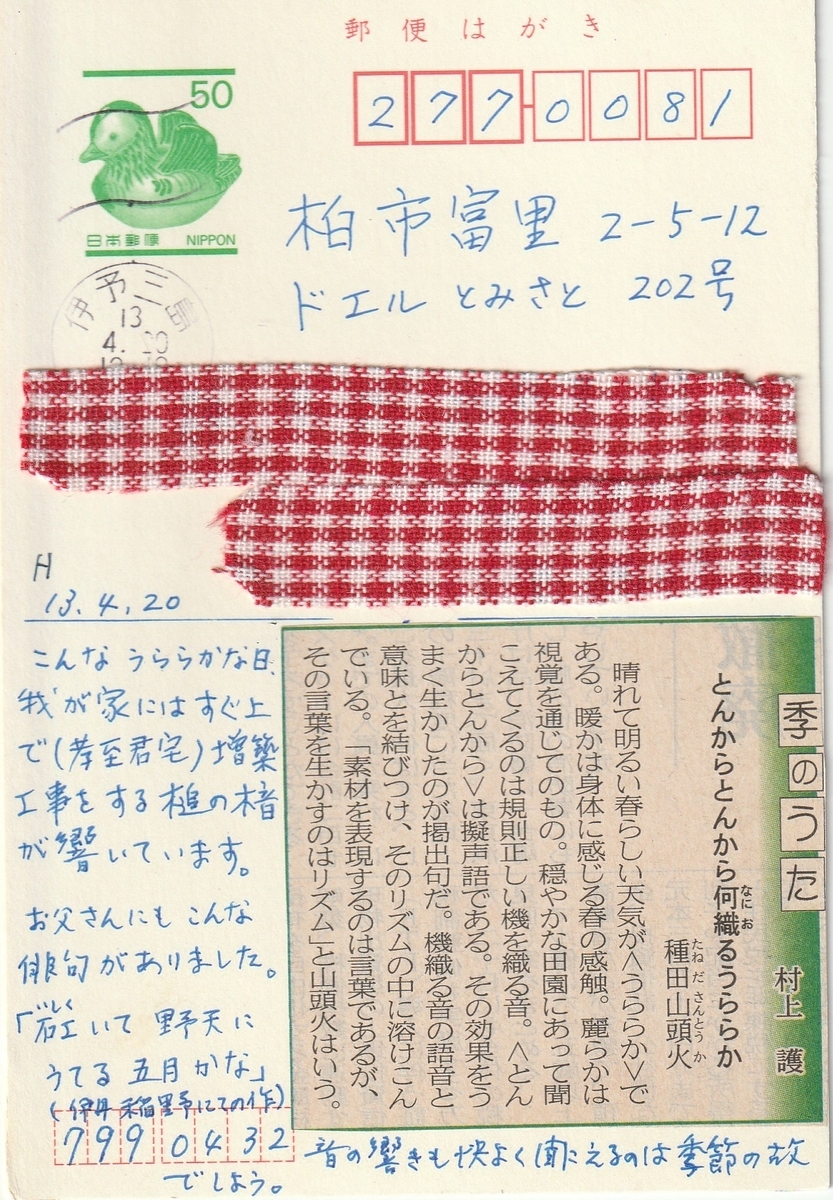 郵便はがき
50
日本郵便 NIPPON
277-0081
柏市富里 2-5-12
ドエル とみさと 202号
伊予三島
13
4. 20
H
13.4.20
こんな うららかな日、
我が家にはすぐ上
で(孝至君宅)増築
工事をする槌の音
が響いています。
お父さんにもこんな
俳句がありました。
いしく
「石工いて 野天に
うてる 五月かな」
(伊丹 稲野にての作)
799 0432
音の響きも快よく聞こえるのは季節の故
でしょう。
季のうた
村上 護
とんからとんから何織るうららか
なに お
種田山頭火
たねだ さんとうか
晴れて明るい春らしい天気が<うららか>で
ある。暖かは身体に感じる春の感触。麗らかは
視覚を通じてのもの。穏やかな田園にあって聞
こえてくるのは規則正しい機を織る音。<とん
からとんから>は擬声語である。その効果をう
まく生かしたのが掲出句だ。機織る音の語音と
意味とを結びつけ、そのリズムの中に溶けこん
でいる。「素材を表現するのは言葉であるが、
その言葉を生かすのはリズム」と山頭火はいう。